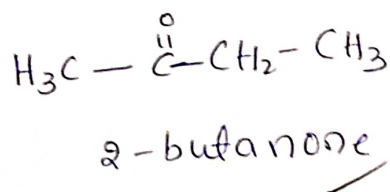 O
H3C — C — CH2 - CH3
2-butanone